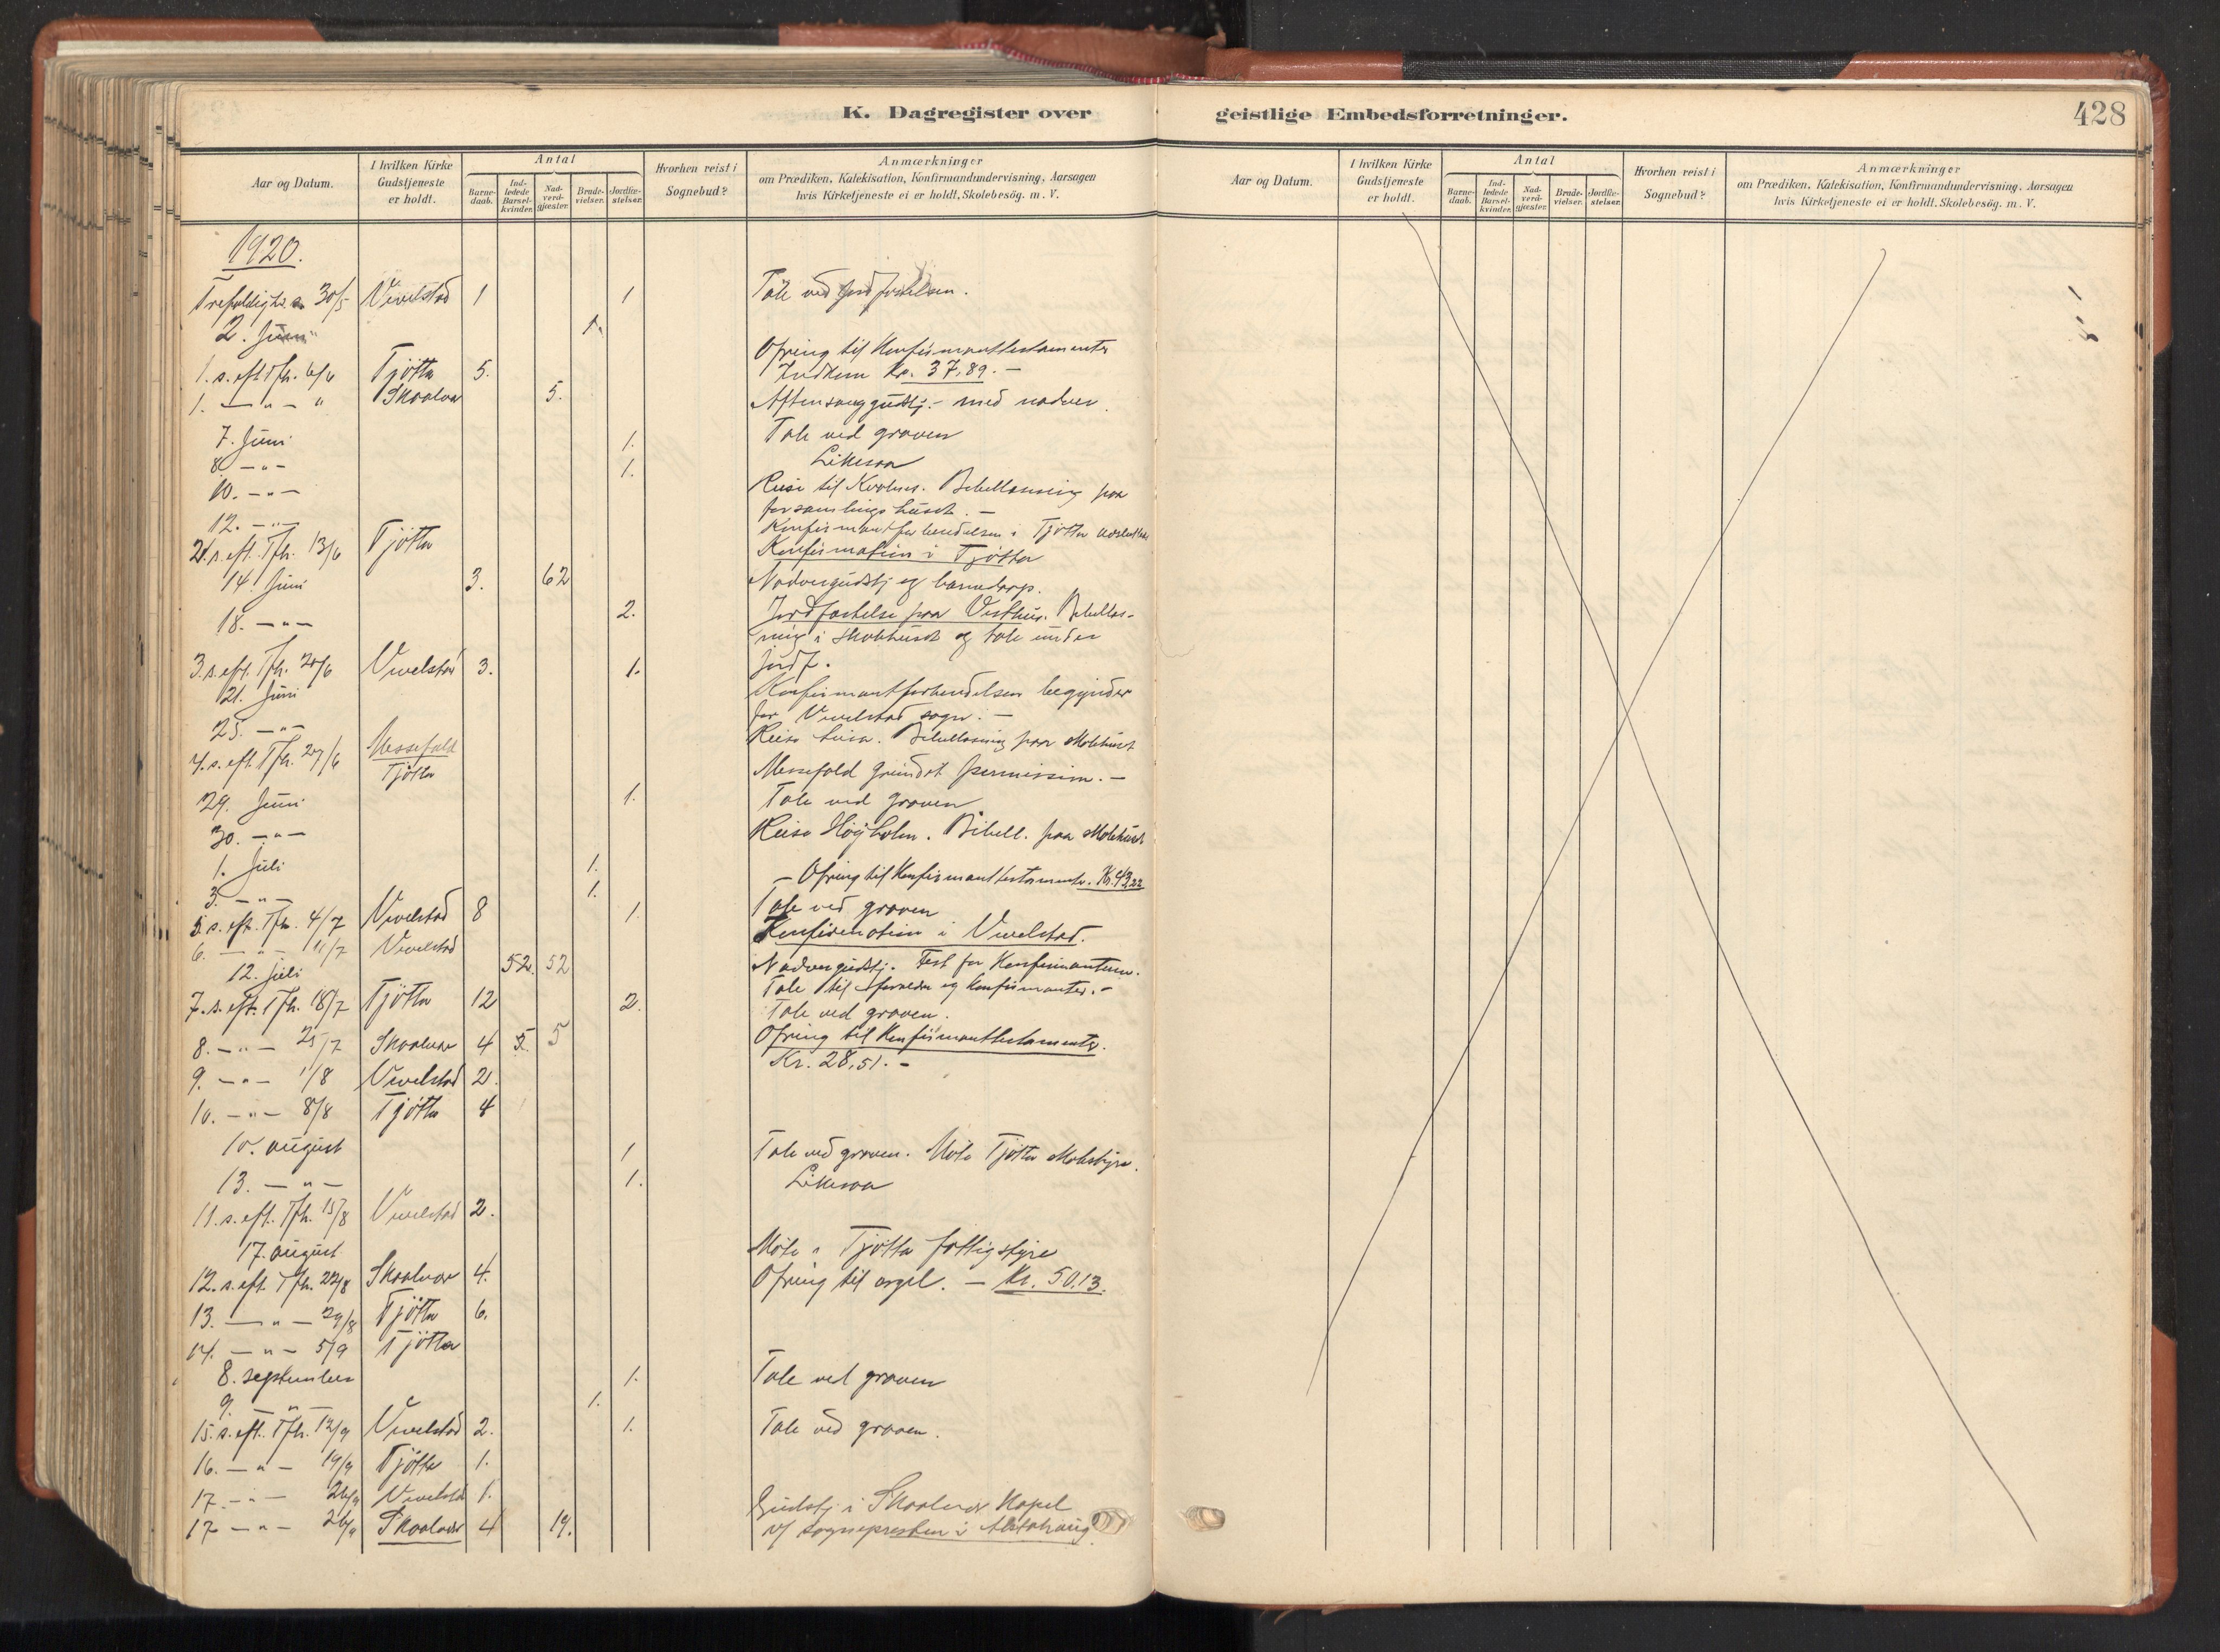 K. Dagregister over geistlige Embedsforretninger.
428
Aar og Datum.
I hvilken Kirke Gudstjeneste er holdt.
Antal
Barne-daab.
Ind-ledede Barsel-kvinder.
Nad-verd-gjæster.
Brude-vielser.
Jordfæ-stelser.
Hvorhen reist i Sognebud?
Anmærkninger
om Prædiken, Katekisation, Konfirmandundervisning, Aarsagen
hvis Kirketjeneste ei er holdt, Skolebesög. m. V.
1920.
Trefoldighs. s. 30/5 Vivelstad 1 1 Tale ved jordfestelsen.
2. Juni 1.
Ofring til Konfirmanttestamenter
1. s. eft. Tfh. 6/6 Tjötta 5. Indkom Kr. 37,89. —
1. — " — " Skaalvær 5. Aftensanggudstj. – med nadver.
7. Juni 1. Tale ved graven
8 — " — 1. Likesaa
10. — " — Reise til Bibellæsning paa
forsamlingshuset. —
12. — " — Konfirmantforberedelsen i Tjötta
2. s. eft. Tfh. 13/6 Tjötta Konfirmation i Tjötta
14. Juni 3. 62 Nadvergudstj. og barnedaap.
18. — " — 2. Jordfæstelse paa Visthus. Bibellæs-
ning i skolehuset og tale under
3. s. eft. Tfh. 20/6 Vivelstad 3. 1. jordf.
21. Juni Konfirmantforberedelsen begynder
for Vivelstad sogn. —
25. — " — Reise Bibellæsning paa skolehuset
4. s. eft. Tfh. 27/6 Messefald Tjötta Messefald grundet permission. —
29. Juni 1. Tale ved graven
30. — " — Reise Höyholm. Bibell. paa skolehuset
1. Juli 1.
— Ofring til Konfirmanttestamenter. Kr. 43,22
3. — " — 1.
5. s. eft. Tfh. 4/7 Vivelstad 8 1. Tale ved graven
6. — " — 11/7 Vivelstad Konfirmation i Vivelstad.
12. Juli 52. 52 Nadvergudstj. Fest for Konfirmanterne.
Tale til foreldre og konfirmanter. –
7. s. eft. Tfh. 18/7 Tjötta 12 2. Tale ved graven.
8. — " — 25/7 Skaalvær 4 5. 5 Ofring til Konfirmanttestamenter.
Kr. 28,51. –
9. — " — 1/8 Vivelstad 2.
10. — " — 8/8 Tjötta 4
10. august 1 Tale ved graven. Möte Tjötta skolestyre.
13. — " — 1. Likesaa
11. s. eft. Tfh. 15/8 Vivelstad 2.
17. august Möte i Tjötta fattigstyre
12. s. eft. Tfh. 22/8 Skaalvær 4. Ofring til orgel. — Kr. 50.13.
13. — " — 29/8 Tjötta 6.
14. — " — 5/9 Tjötta
8. september 1. Tale ved graven
9. — " — 1.
15. s. eft. Tfh. 12/9 Vivelstad 2. 1. Tale ved graven.
16. — " — 19/9 Tjötta 1.
17. — " — 26/9 Vivelstad 1. Gudstj. i Skaalvær Kapel
17 — " — 26/9 Skaalvær 4 19. v/ sognepresten i Alstahaug.
Aar og Datum.
I hvilken Kirke Gudstjeneste er holdt.
Antal
Barne-daab.
Ind-ledede Barsel-kvinder.
Nad-verd-gjæster.
Brude-vielser.
Jordfæ-stelser.
Hvorhen reist i Sognebud?
Anmærkninger
om Prædiken, Katekisation, Konfirmandundervisning, Aarsagen
hvis Kirketjeneste ei er holdt, Skolebesög. m. V.